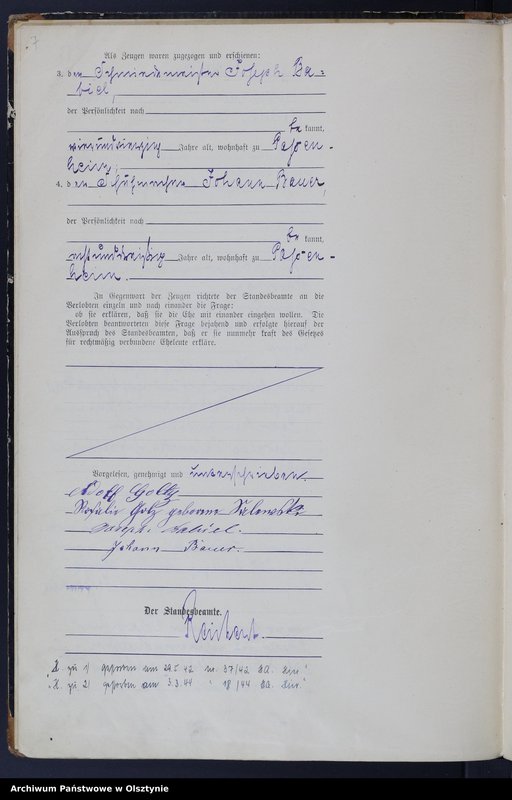 7
Als Zeugen waren zugezogen und erschienen:
3. den Schmiedemeister Joseph Ba-
biel,
der Persönlichkeit nach
be kannt,
vierundvierzig Jahre alt, wohnhaft zu Passen-
heim;
4. den Schuhmacher Johann Bauer,
der Persönlichkeit nach
be kannt,
achtunddreißig Jahre alt, wohnhaft zu Passen-
heim.
In Gegenwart der Zeugen richtete der Standesbeamte an die
Verlobten einzeln und nach einander die Frage:
ob sie erklären, daß sie die Ehe mit einander eingehen wollen. Die
Verlobten beantworteten diese Frage bejahend und erfolgte hierauf der
Ausspruch des Standesbeamten, daß er sie nunmehr kraft des Gesetzes
für rechtmäßig verbundene Eheleute erkläre.
Vorgelesen, genehmigt und unterschrieben.
Adolf Goltz
Rosalie Golz geborene Salewski
Joseph Babiel.
Johann Bauer.
Der Standesbeamte.
zu 1) gestorben am 29.5.42 nr. 37/42 StA.
zu 2) gestorben am 3.3.44 " 18/44 StA.
Archiwum Państwowe w Olsztynie